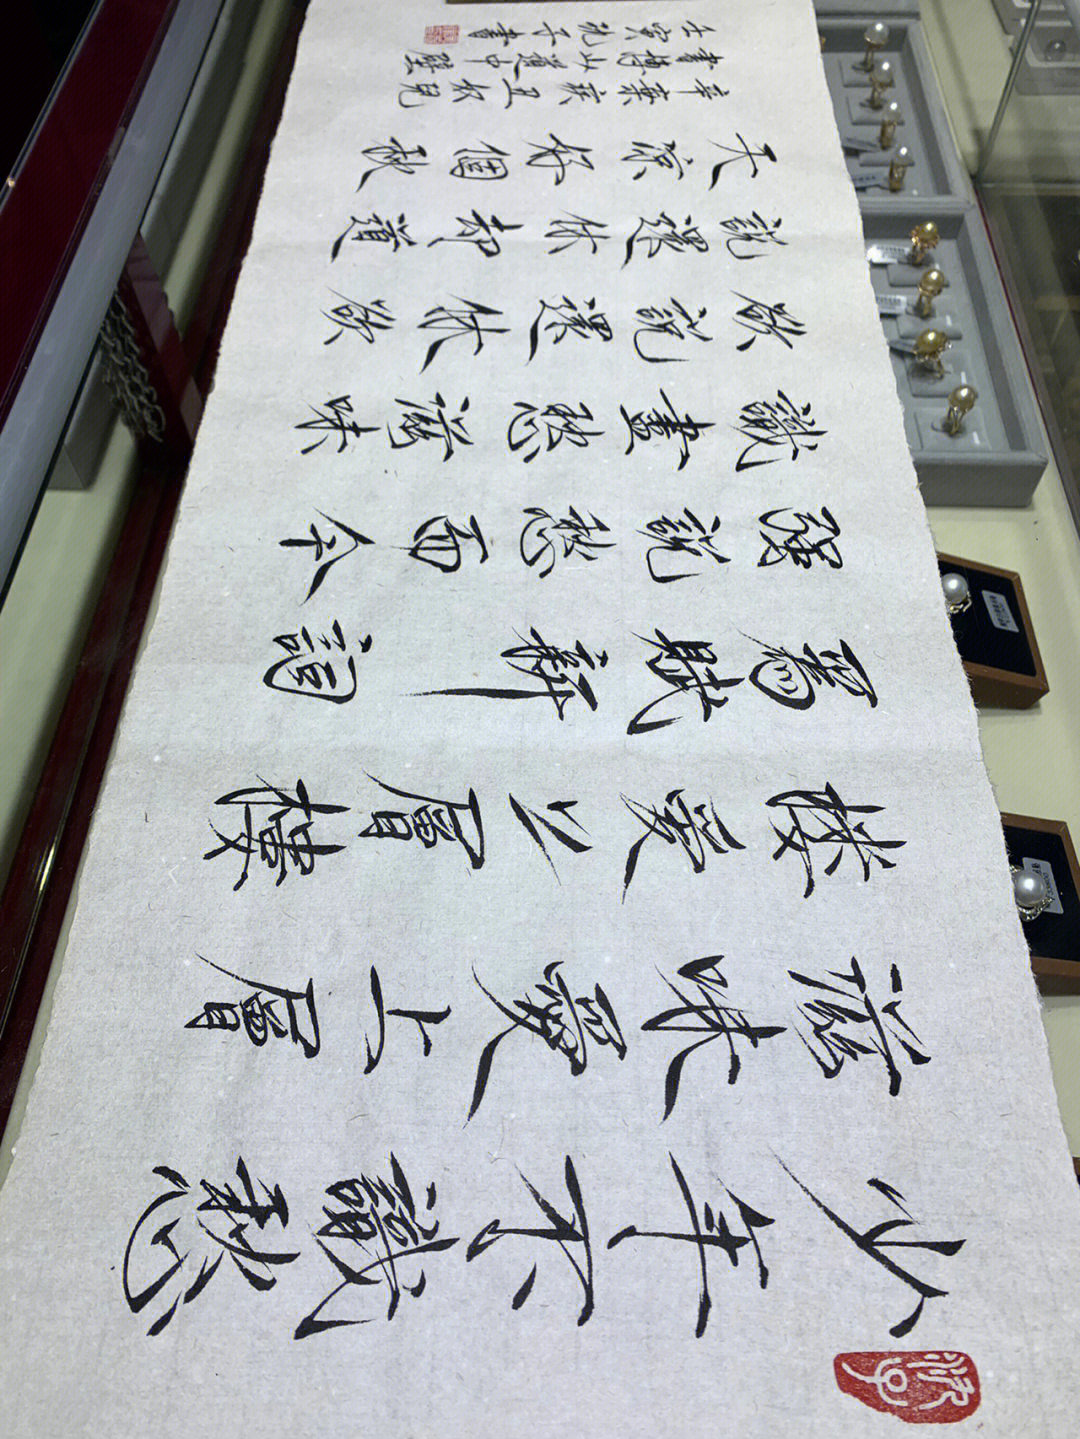 少年不識愁
滋味愛上層
樓愛上層樓
爲賦新詞
強說愁而今
識盡愁滋味
欲說還休欲
說還休却道
天涼好個秋
辛棄疾丑奴兒
書博山道中壁
壬寅 子書